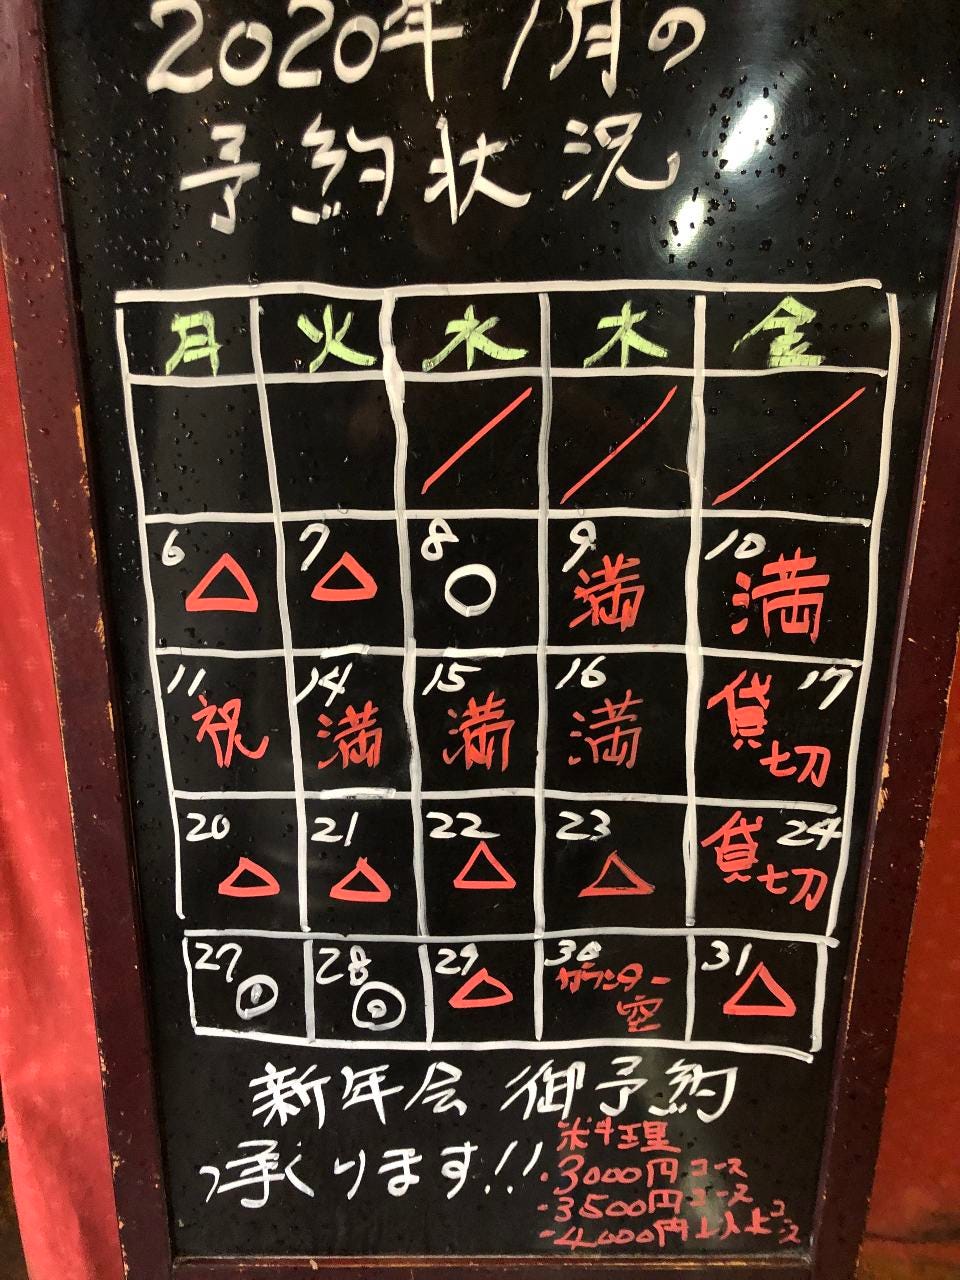 2020年 1月の
予約状況
月 火 水 木 金
6 △ 7 △ 8 ○ 9 満 10 満
11 祝 14 満 15 満 16 満 17 貸切
20 △ 21 △ 22 △ 23 △ 24 貸切
27 ◎ 28 ◎ 29 △ 30 カウンター空 31 △
新年会 御予約
承ります!!
料理
・3000円コース
・3500円コース
・4000円以上コース